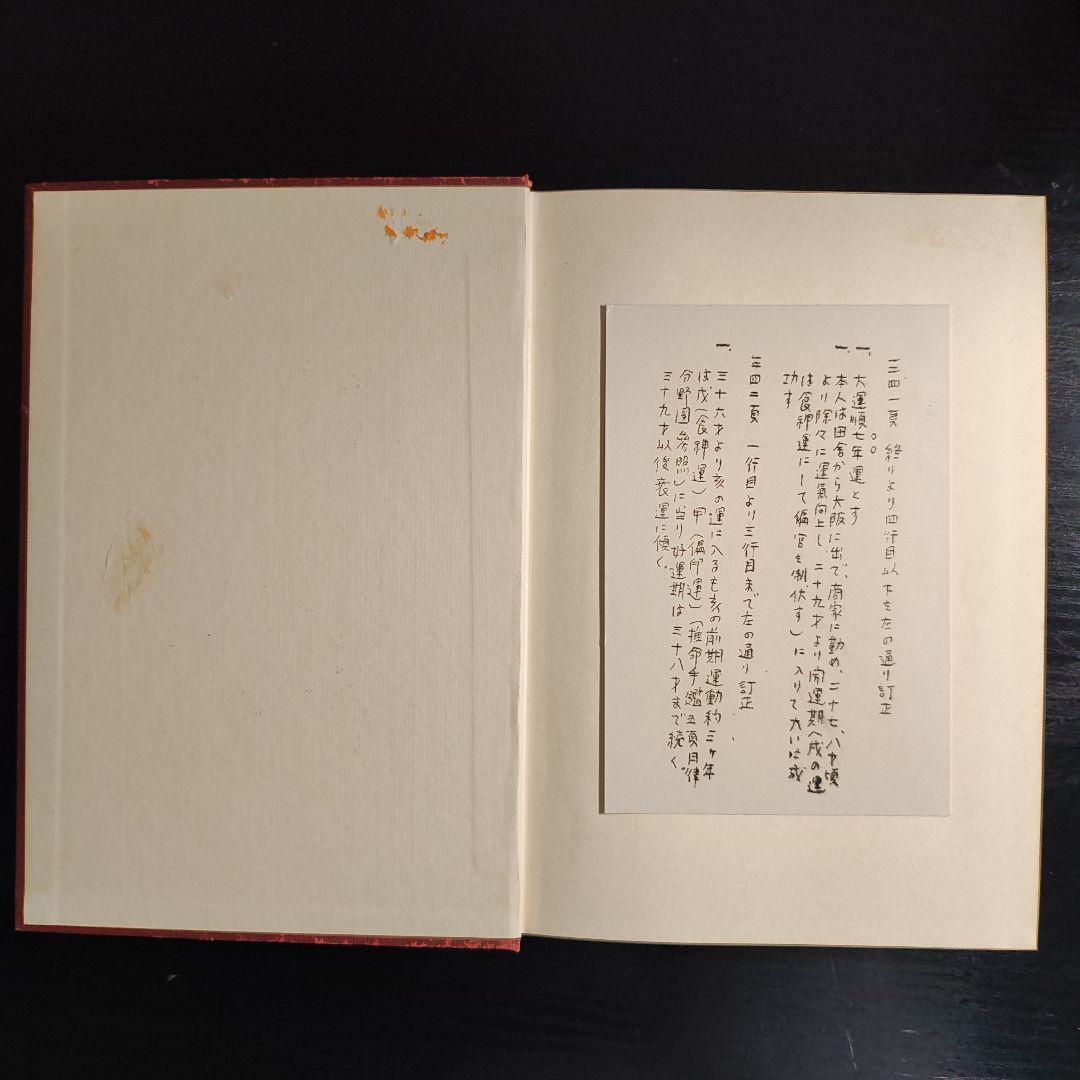 三四一頁 終りより四行目以下を左の通り訂正
一、大運順七年運とす
一、本人は田舎から大阪に出で、商家に勤め、二十七、八才頃
より除々に運氣向上し、二十九才より開運期へ戌の運
は食神運にして偏官を制伏す)に入りて大いに成
功す
三四二頁 一行目より三行目まで左の通り訂正
一、三十六才より亥の運に入るも亥の前期運動約三ヶ年
は戊(食神運)甲(偏印運)(推命手鑑五頁月律
分野圖參照)に当り好運期は三十八才まで続く。
三十九才以後衰運に傾く。